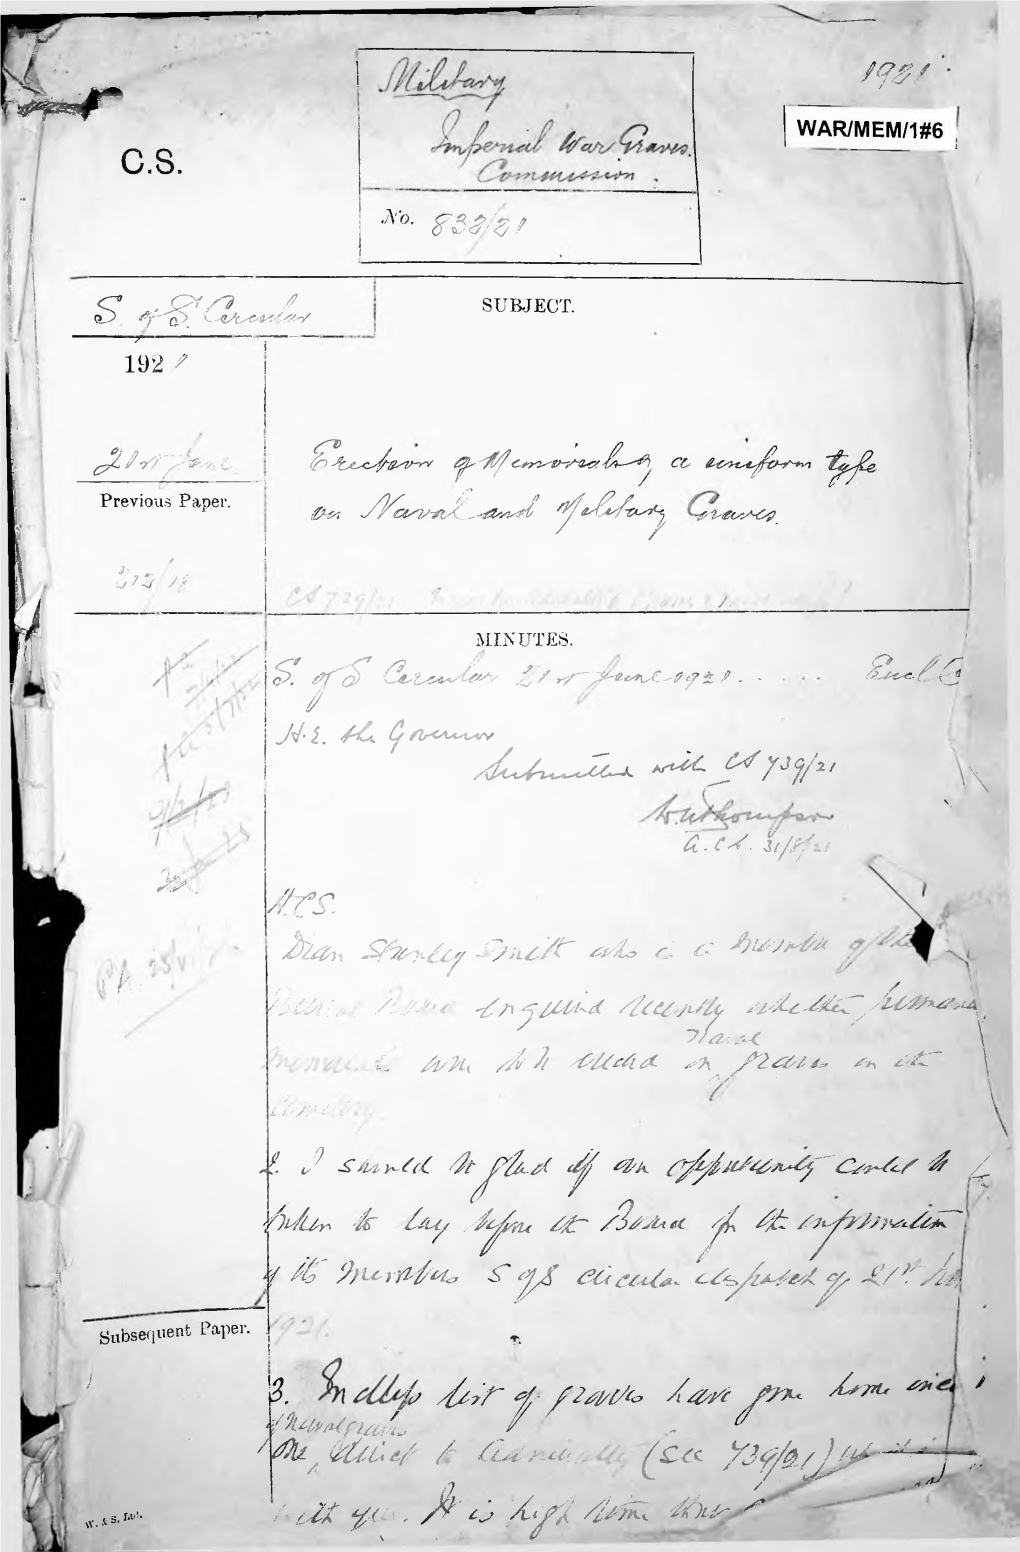 Military
1921.
WAR/MEM/1#6
Imperial War Graves
Commission.
C.S.
No. 832/21
S. of S. Circular
SUBJECT.
1921
21st June
Previous Paper.
Erection of Memorials of a uniform type
on Naval and Military Graves.
212/18
CS 739/21
MINUTES.
S. of S Circular 21st June 1921 . . . . . Encl
H.E. the Governor
Submitted with CS 739/21
W.H.Thompson
A.C.S. 31/8/21
H.C.S.
Dean Stanley Smith who is a member of the
Board enquired recently whether permanent
Naval
memorials were to be erected on graves in the
Cemetery.
2. I should be glad if an opportunity could be
taken to lay before the Board for the information
of its Members S of S circular despatch of 21st June
1921.
Subsequent Paper.
3. Endless list of graves have gone home once
of Naval graves
one direct to Admiralty (see 739/21)
with you. It is high time
P.A. 25/
W. & S. Ltd.